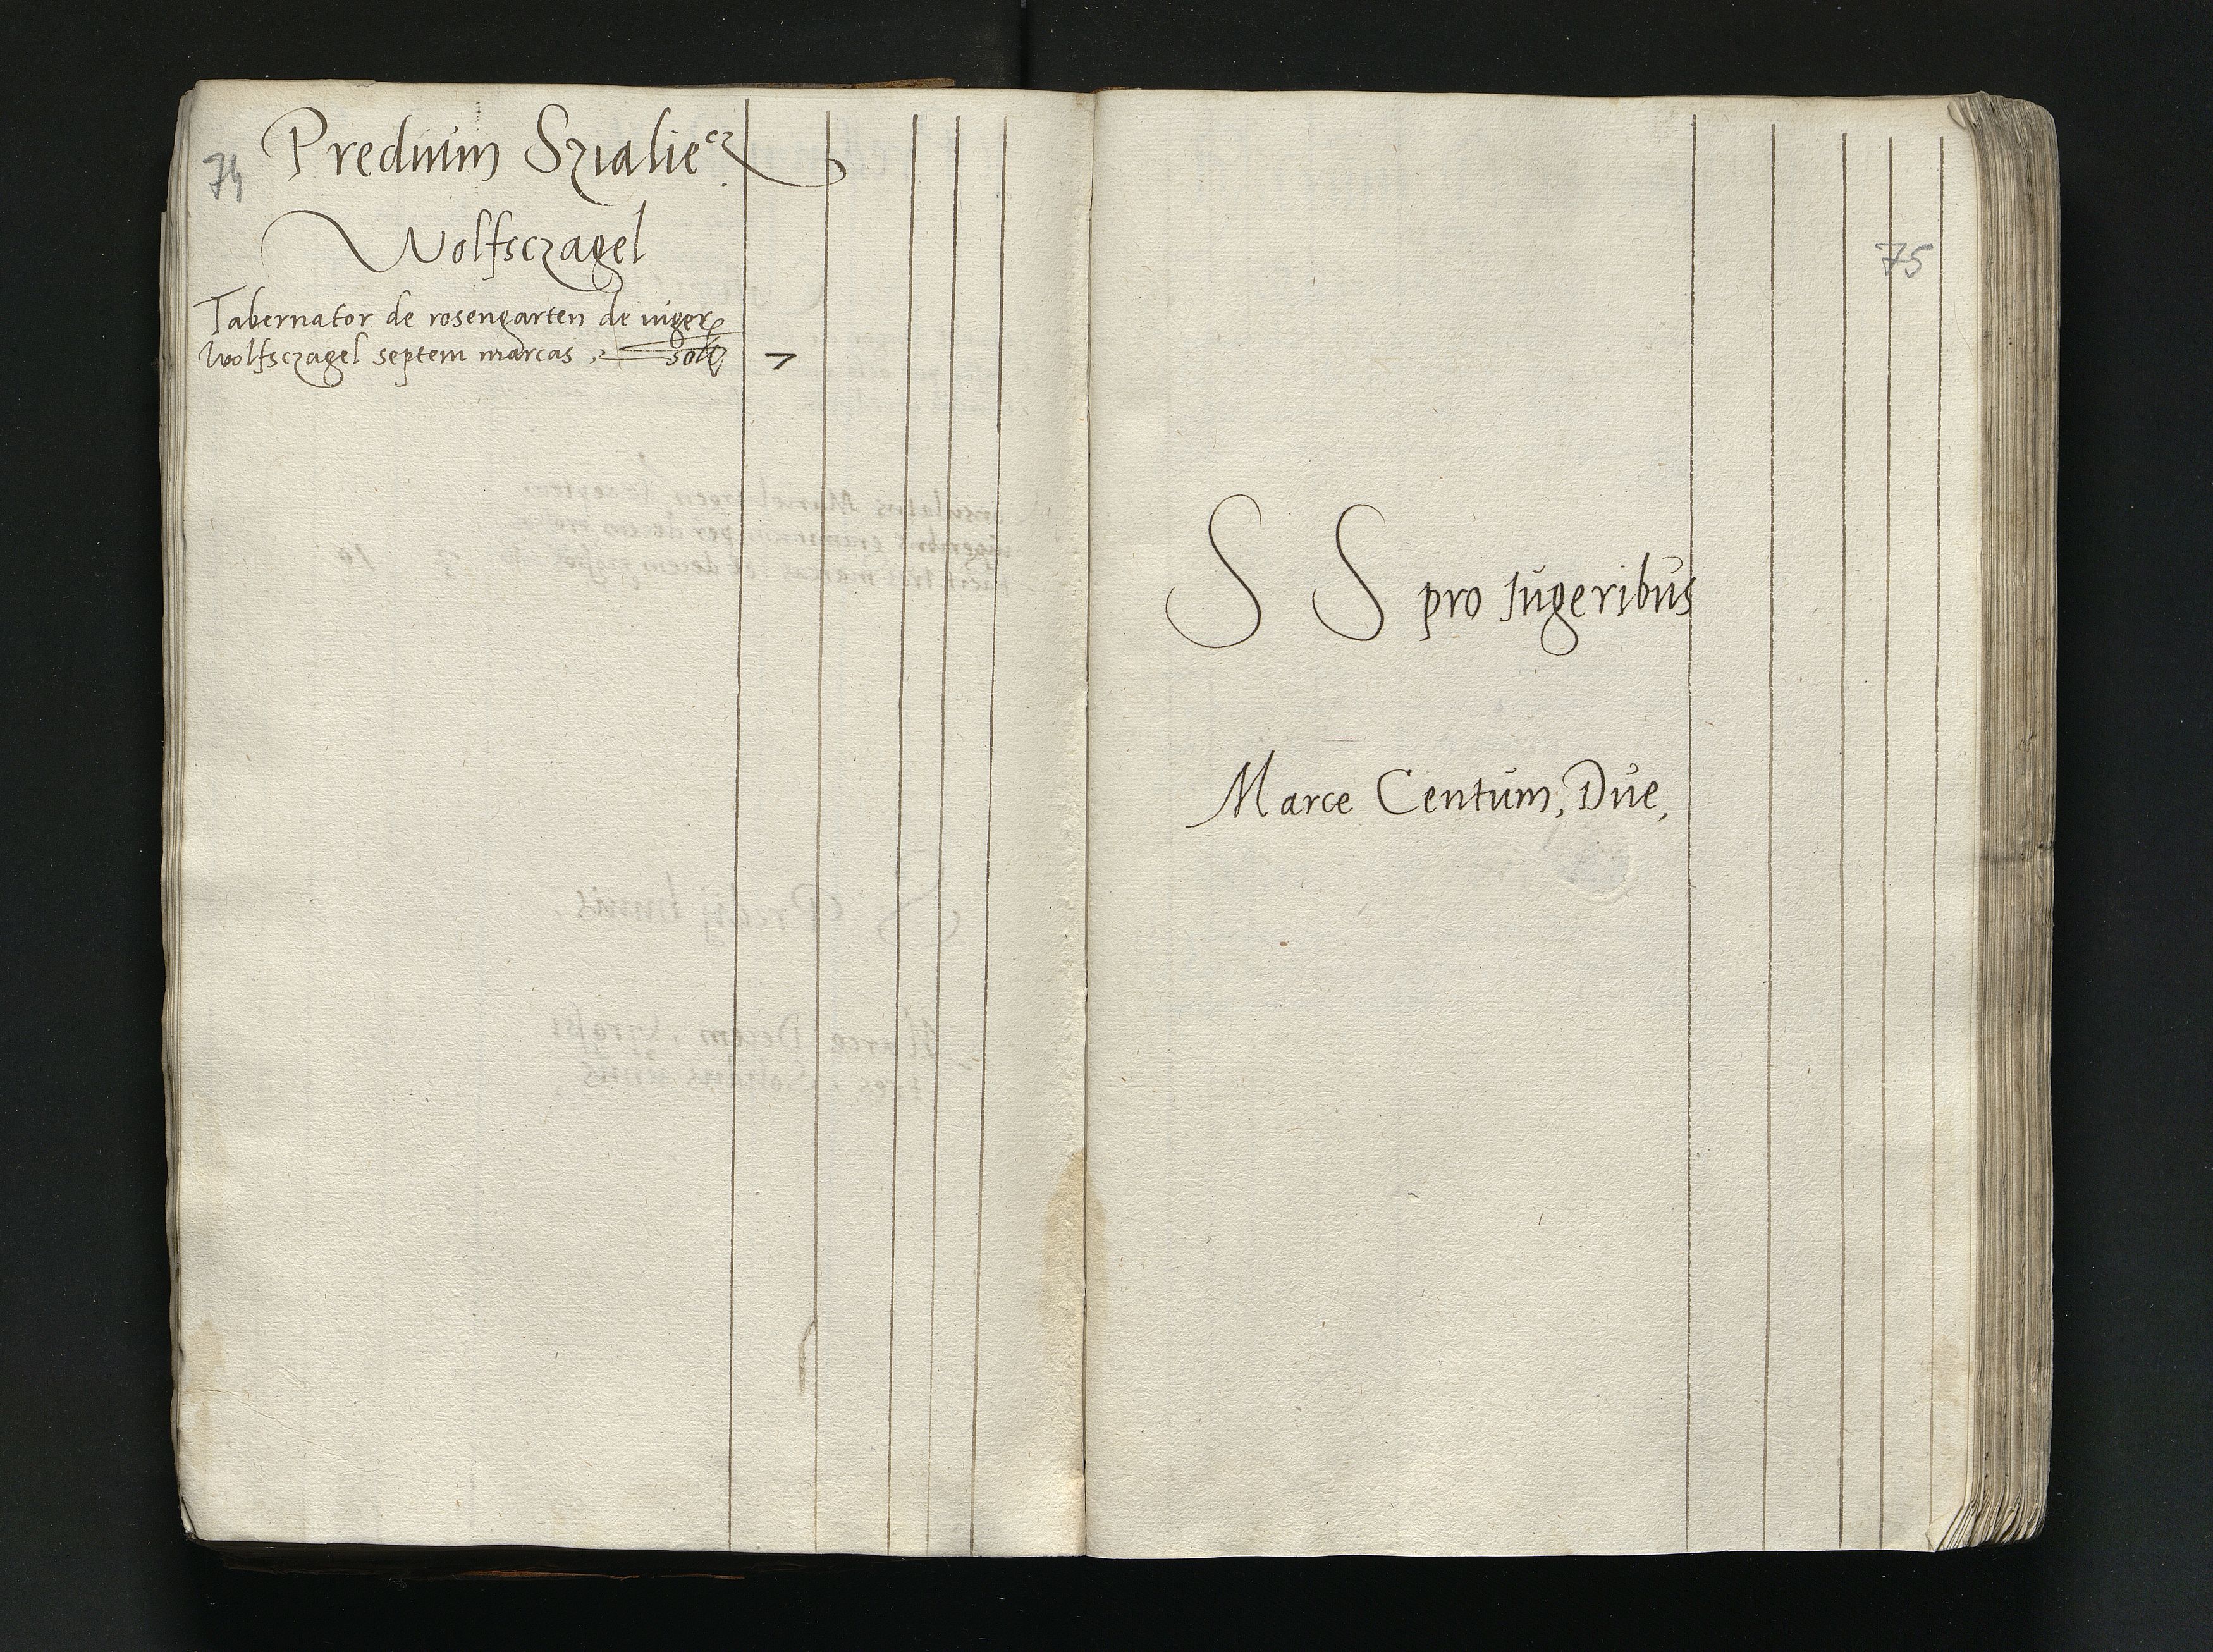 74
Predium Szaliecz
Wolfsczagel
Tabernator de rosengarten de iuger
Wolfsczagel septem marcas
7
75
S S pro Iugeribus
Marce Centum, Due,